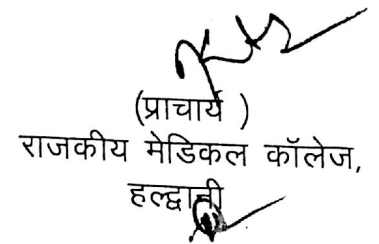 (प्राचार्य )
राजकीय मेडिकल कॉलेज,
हल्द्वानी